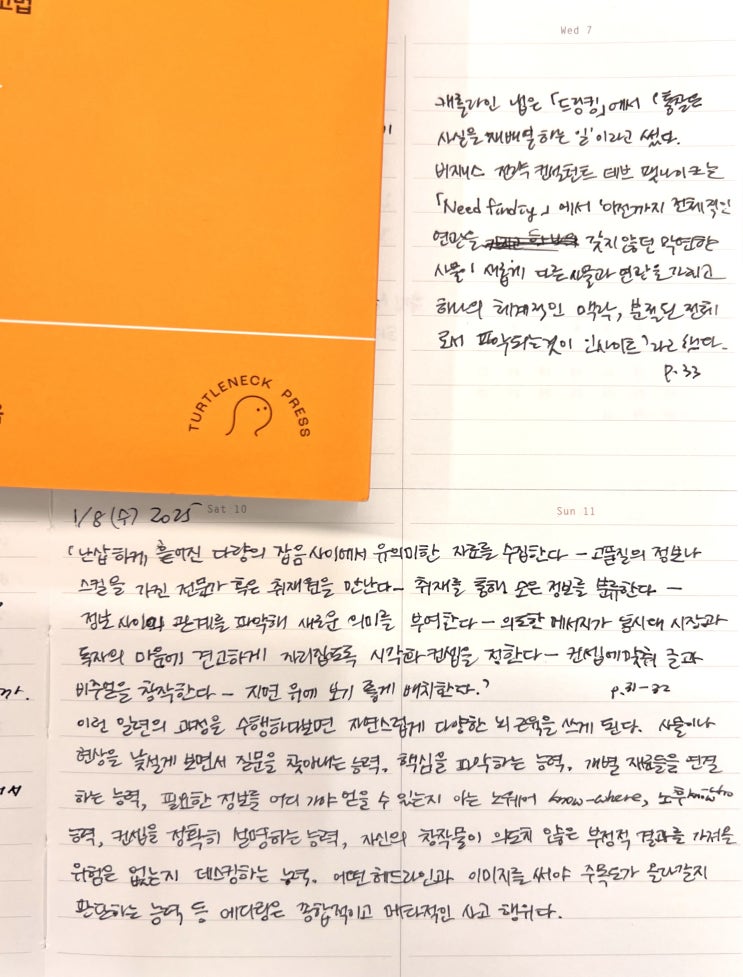 고법
Wed 7
캐롤라인 냅은 「드링킹」에서 '통찰은
사실을 재배열하는 일'이라고 썼다.
비지니스 전략 컨설턴트 데브 팻나이크는
「Needfinding」에서 '이전까지 전체적인
연관을 갖지 않던 막연한
사물이 새롭게 다른 사물과 연관을 가지고
하나의 체계적인 맥락, 분절된 전체
로서 파악되는 것이 인사이트'라고 했다.
p.33
TURTLENECK PRESS
1/8 (수) 2025
Sat 10
Sun 11
'난삽하게 흩어진 다량의 잡음 사이에서 유의미한 자료를 수집한다 – 고품질의 정보나
스킬을 가진 전문가 혹은 취재원을 만난다 – 취재를 통해 모은 정보를 분류한다 –
정보 사이의 관계를 파악해 새로운 의미를 부여한다 – 의도한 메시지가 동시대 시장과
독자의 마음에 견고하게 자리잡도록 시각과 컨셉을 정한다 – 컨셉에 맞춰 글과
비주얼을 창작한다 – 지면 위에 보기 좋게 배치한다.'
p.31-32
이런 일련의 과정을 수행하다보면 자연스럽게 다양한 뇌 근육을 쓰게 된다. 사물이나
현상을 낯설게 보면서 질문을 찾아내는 능력, 핵심을 파악하는 능력, 개별 재료들을 연결
하는 능력, 필요한 정보를 어디 가야 얻을 수 있는지 아는 노웨어 know-where, 노후 know-who
능력, 컨셉을 정확히 설명하는 능력, 자신의 창작물이 의도치 않은 부정적 결과를 가져올
위험은 없는지 데스킹하는 능력, 어떤 헤드라인과 이미지를 써야 주목도가 올라갈지
판단하는 능력 등 에디팅은 종합적이고 메타적인 사고 행위다.